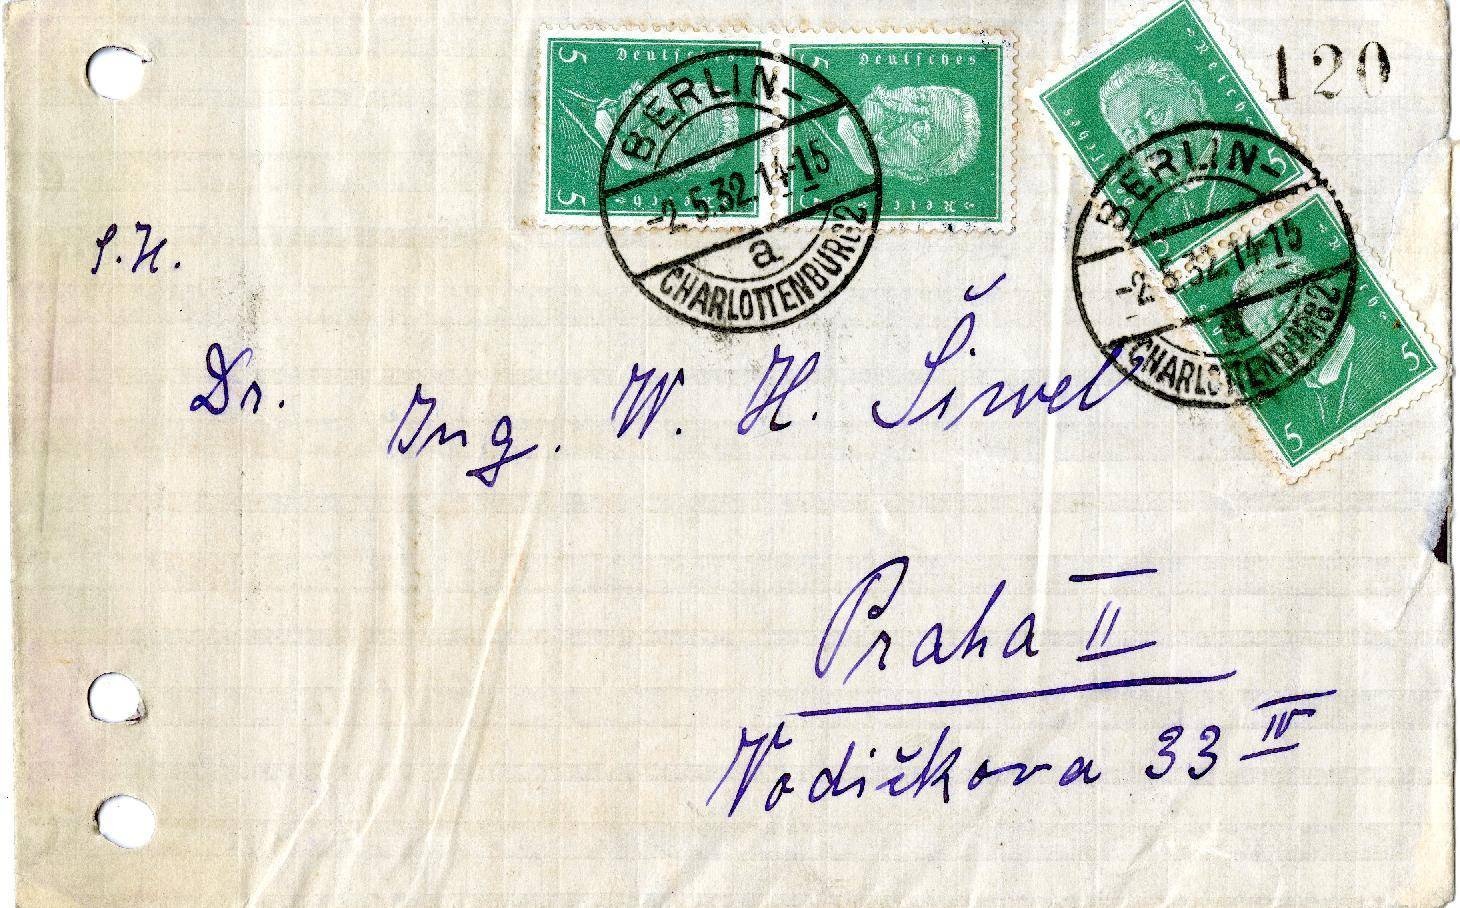 5 Deutsches Reich 5
5 Deutsches Reich 5
120
Deutsches Reich 5
Reich 5 5
BERLIN-
-2.5.32.14-15
a
CHARLOTTENBURG2
BERLIN-
-2.5.32.14-15
a
CHARLOTTENBURG2
S.H.
Dr. Ing. W. H. Širvel
Praha II
Vodičkova 33 IV